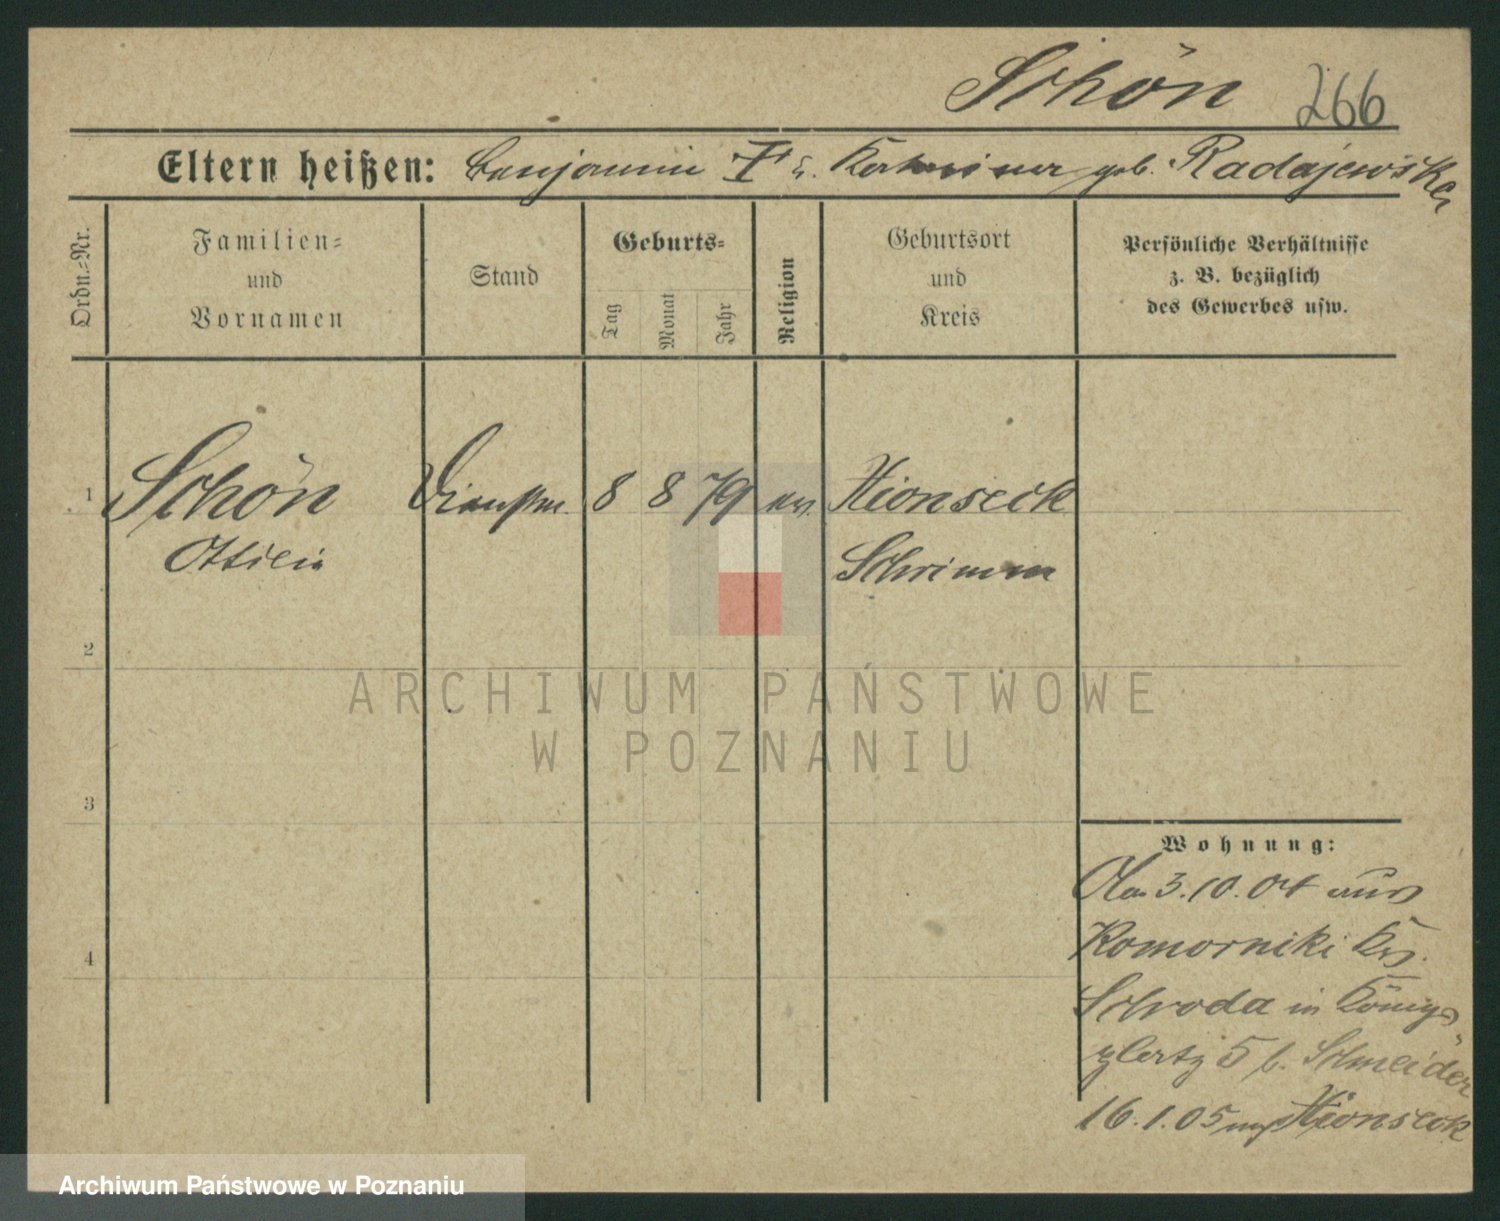 Schön 266
Eltern heißen: Benjamin † u. geb. Radajewska
Ordn.-Nr.
Familien-
und
Vornamen
Stand
Geburts-
Tag
Monat
Jahr
Religion
Geburtsort
und
Kreis
Persönliche Verhältnisse
z. B. bezüglich
des Gewerbes usw.
1 Schön 8 8 79 ev. Xionseck
Ottilie Schrimm
2
3
4
Wohnung:
3.10.04 aus
Komorniki Krs.
Schroda in Königs
platz 5 b. Schneider
16.1.05 Xionseck
ARCHIWUM PAŃSTWOWE
W POZNANIU
Archiwum Państwowe w Poznaniu